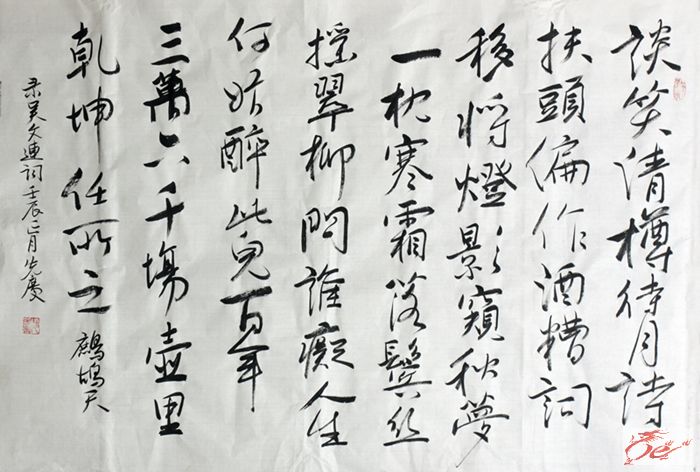 談笑清樽待月詩
扶頭偏作酒糟詞
移將燈影窺秋夢
一枕寒霜落鬢絲
搖翠柳問誰癡人生
何妨醉此兒百年
三萬六千場壺里
乾坤任所之 鷓鴣天
录吴文連詞壬辰正月先慶